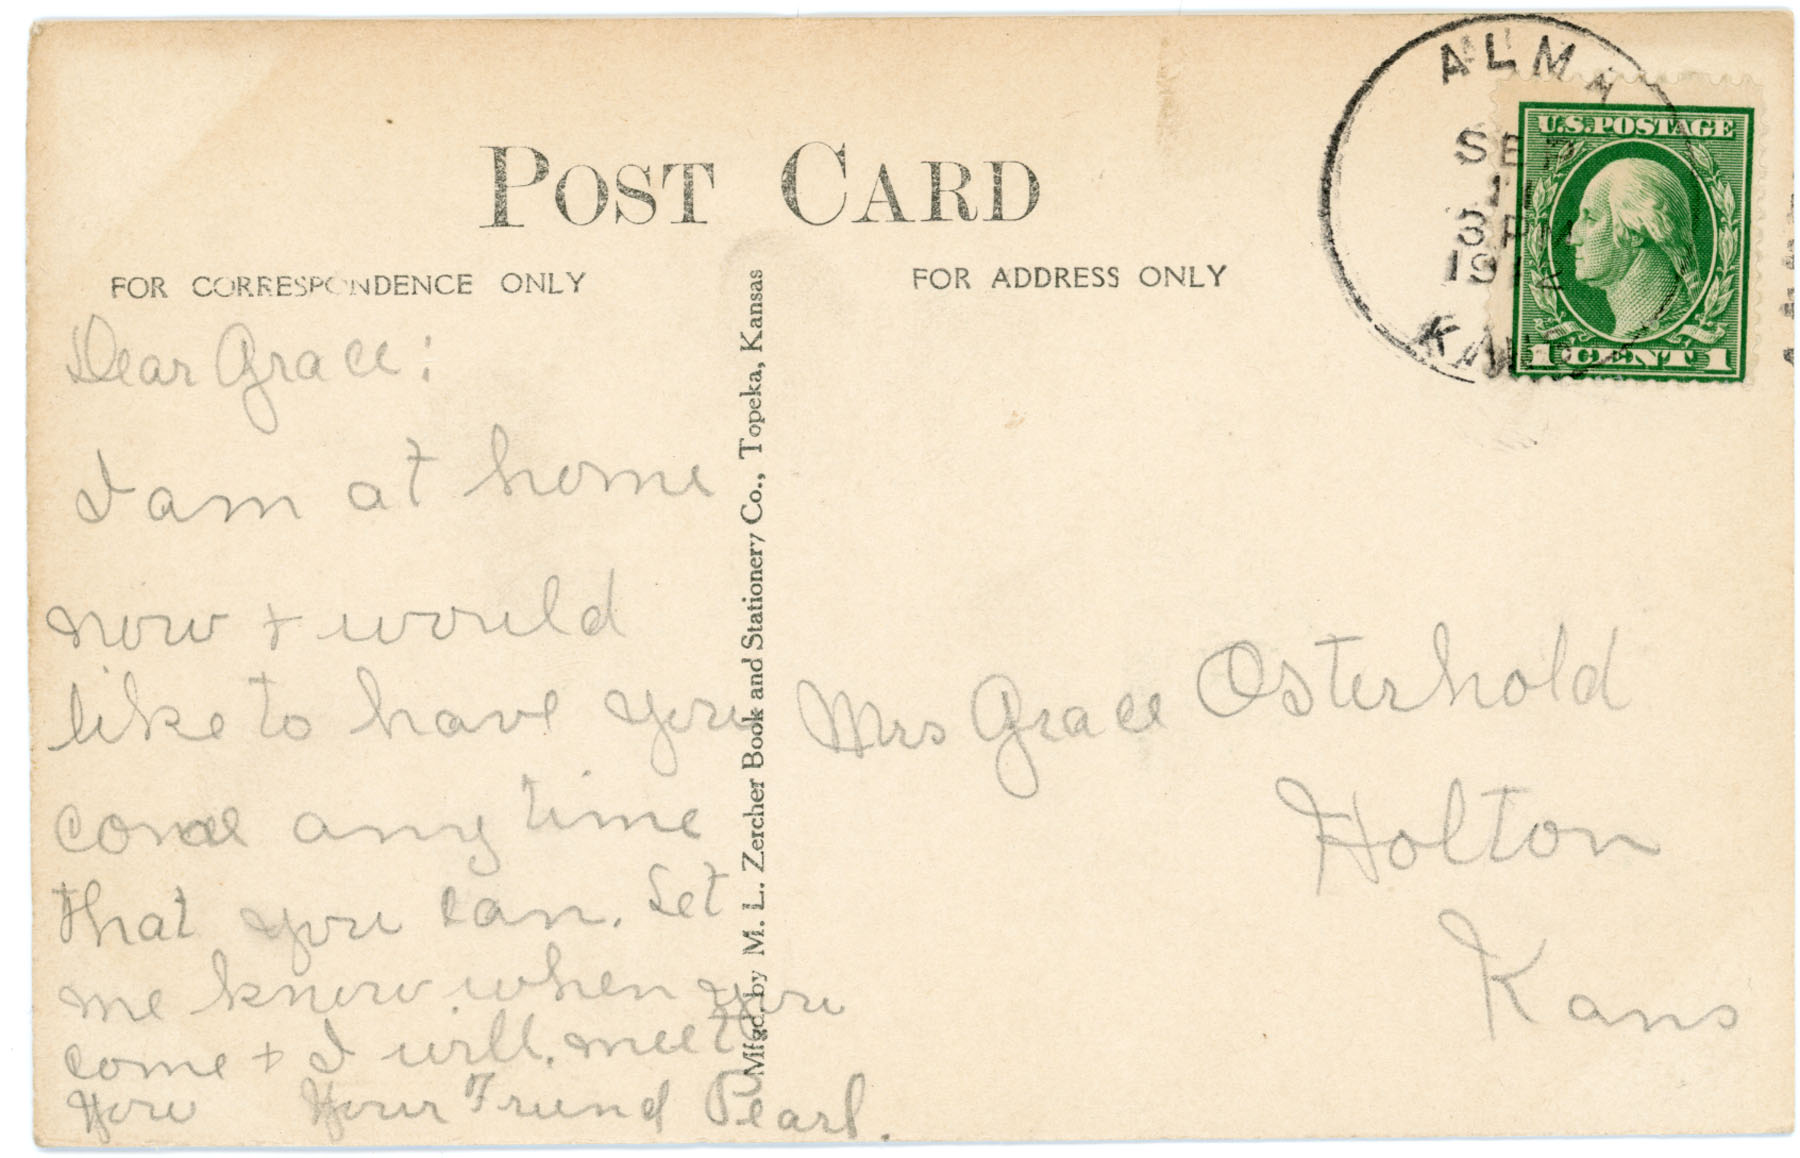 POST CARD
FOR CORRESPONDENCE ONLY
Dear Grace:
I am at home
now + would
like to have you
come any time
that you can. Let
me know when you
come + I will meet
you Your Friend Pearl.
Mfgd. by M. L. Zercher Book and Stationery Co., Topeka, Kansas
FOR ADDRESS ONLY
Mrs Grace Osterhold
Holton
Kans
ALMA
SEP
11
PM
KANS
U.S. POSTAGE
1 CENT 1